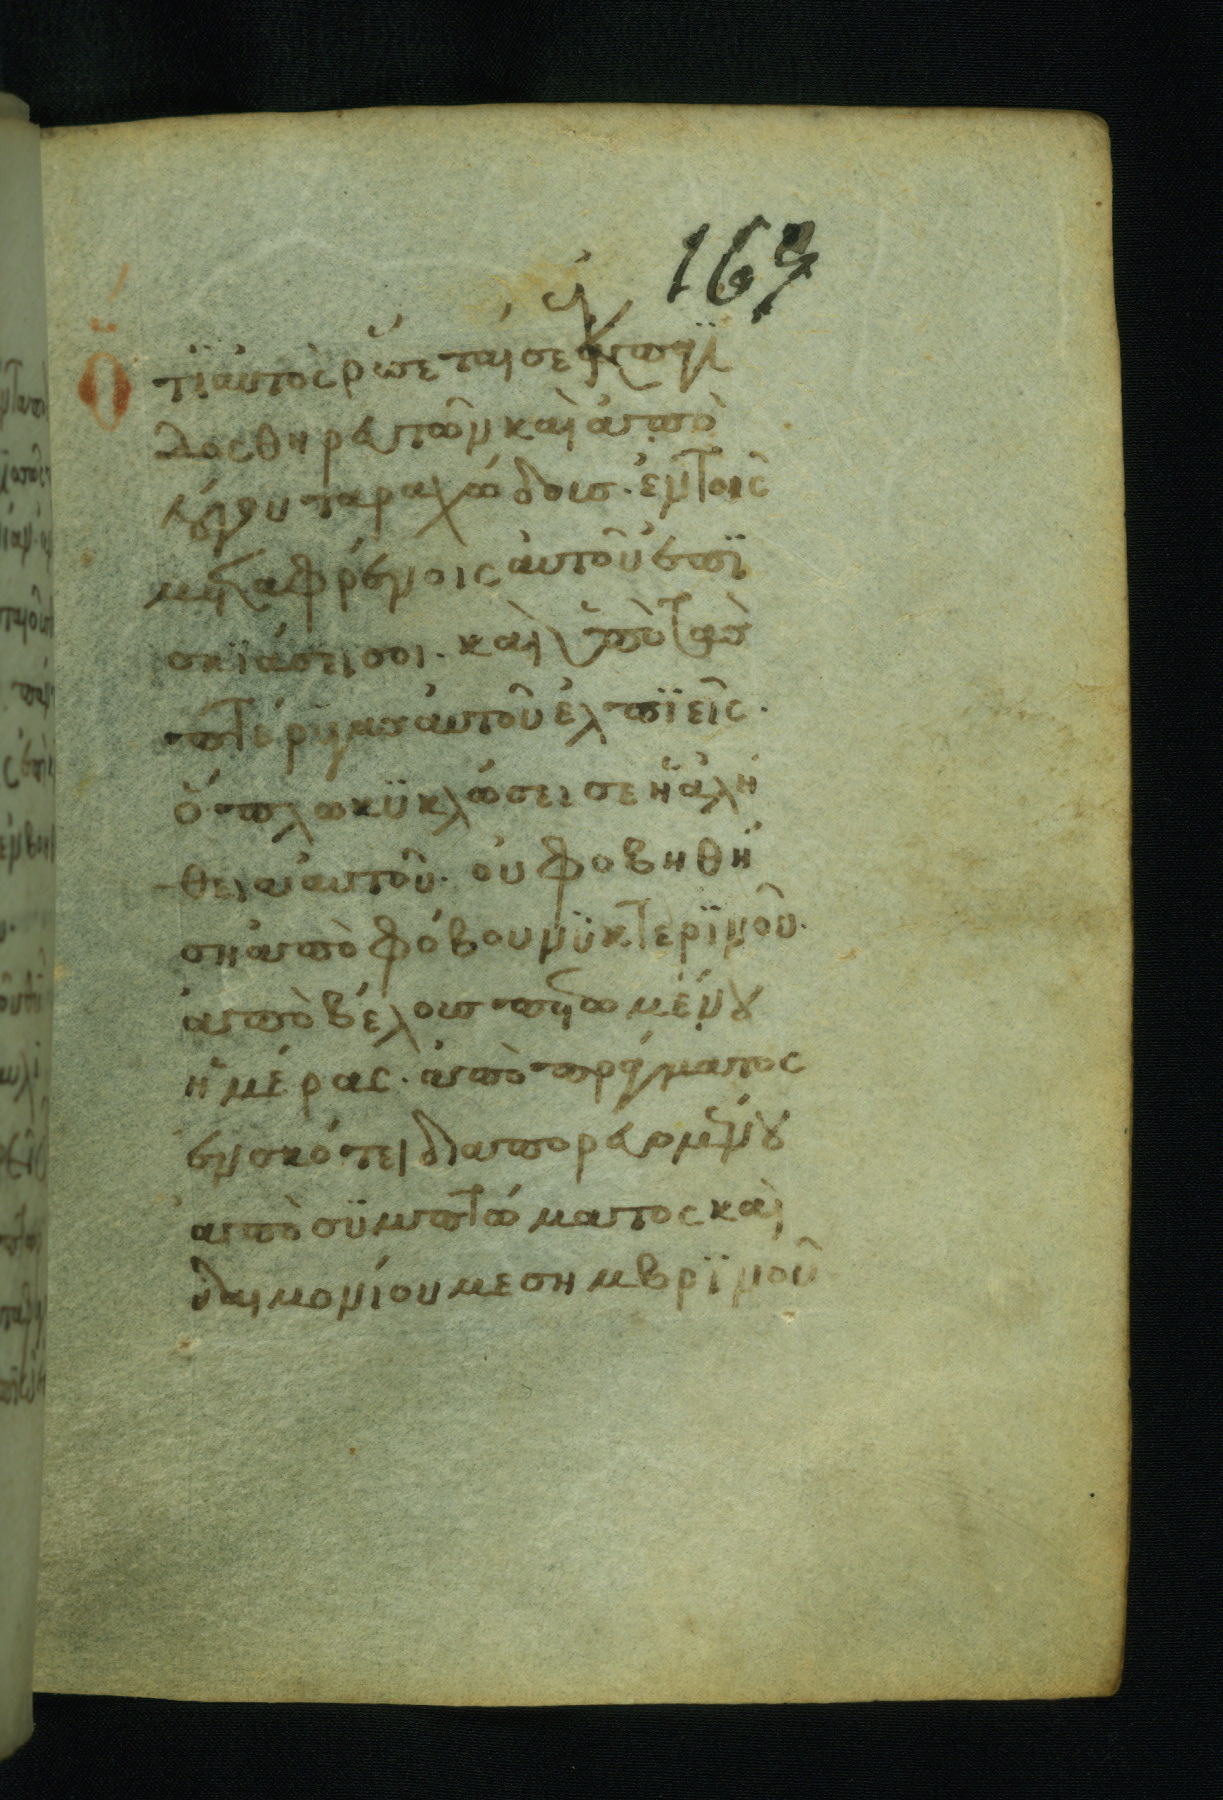 163
Ὅτϊ ἀυτὸς ρῦσεταί σε ἐκ παγϊ
δος θηρευτῶν καὶ ἀπὸ
λόγου ταραχώδους· ἐν τοῖς
μεταφρένοις ἀυτοῦ ἐπϊ
σκϊάσει σοι· καὶ ὑπὸ τὰς
πτέρυγας ἀυτοῦ ἐλπϊεῖς·
ὅπλω κϋκλώσει σε ἡ ἀλή
θεια ἀυτοῦ· οὐ φοβηθή
ση ἀπὸ φόβου νϋκτερϊνοῦ·
ἀπὸ βέλους πετωμένου
ἡμέρας· ἀπὸ πράγματος
ἐν σκότει διαπορευομένου
ἀπὸ σϋμπτώματος καὶ
δαιμονίου μεσημβρϊνοῦ